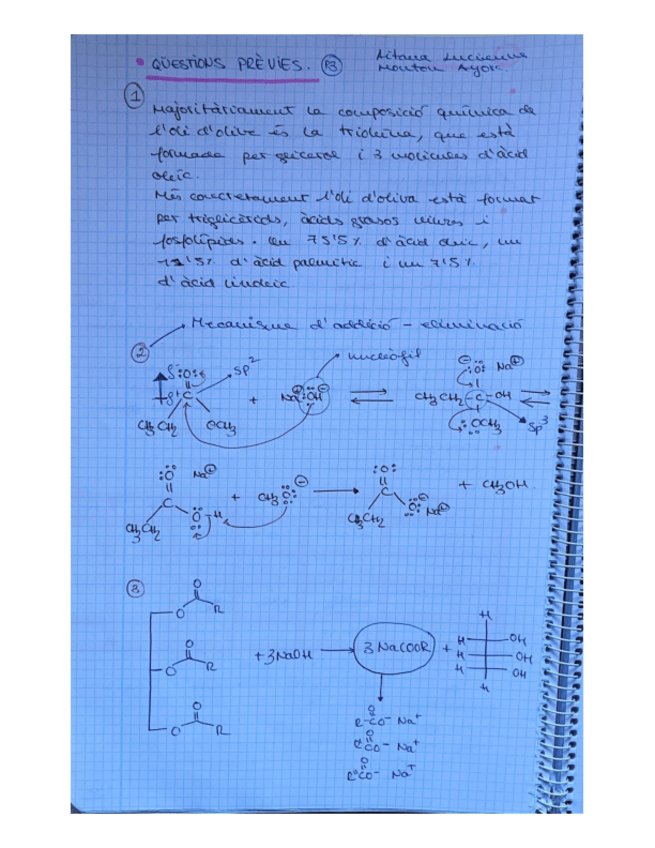 QÜESTIONS PRÈVIES. P3
Aitana Lucienne
Mouton Ayor.
1
Majoritàriament la composició química de
l'oli d'oliva és la trioleïna, que està
formada per glicerol i 3 molècules d'àcid
oleic.
Més concretament l'oli d'oliva està format
per triglicèrids, àcids grasos lliures i
fosfolípids. Un 75'5% d'àcid oleic, un
11'5% d'àcid palmític i un 7'5%
d'àcid linoleic
Mecanisme d'addició - eliminació
2
sp² nucleòfil
δ⁻ :O: :O:⊖ Na⊕
δ⁺ C + Na⊕ :OH⊖ ⇌ CH₃CH₂-C-OH ⇌
CH₃CH₂ OCH₃ :OCH₃ sp³
:O: Na⊕ :O:
C + CH₃O:⊖ → C + CH₃OH
CH₃CH₂ O-H CH₃CH₂ O:⊖ Na⊕
3
O H
O R
O H OH
O R + 3NaOH → 3 NaCOOR + H OH
H OH
O H
O R
O
R-CO⁻ Na⁺
O
R'CO⁻ Na⁺
O
R''CO⁻ Na⁺